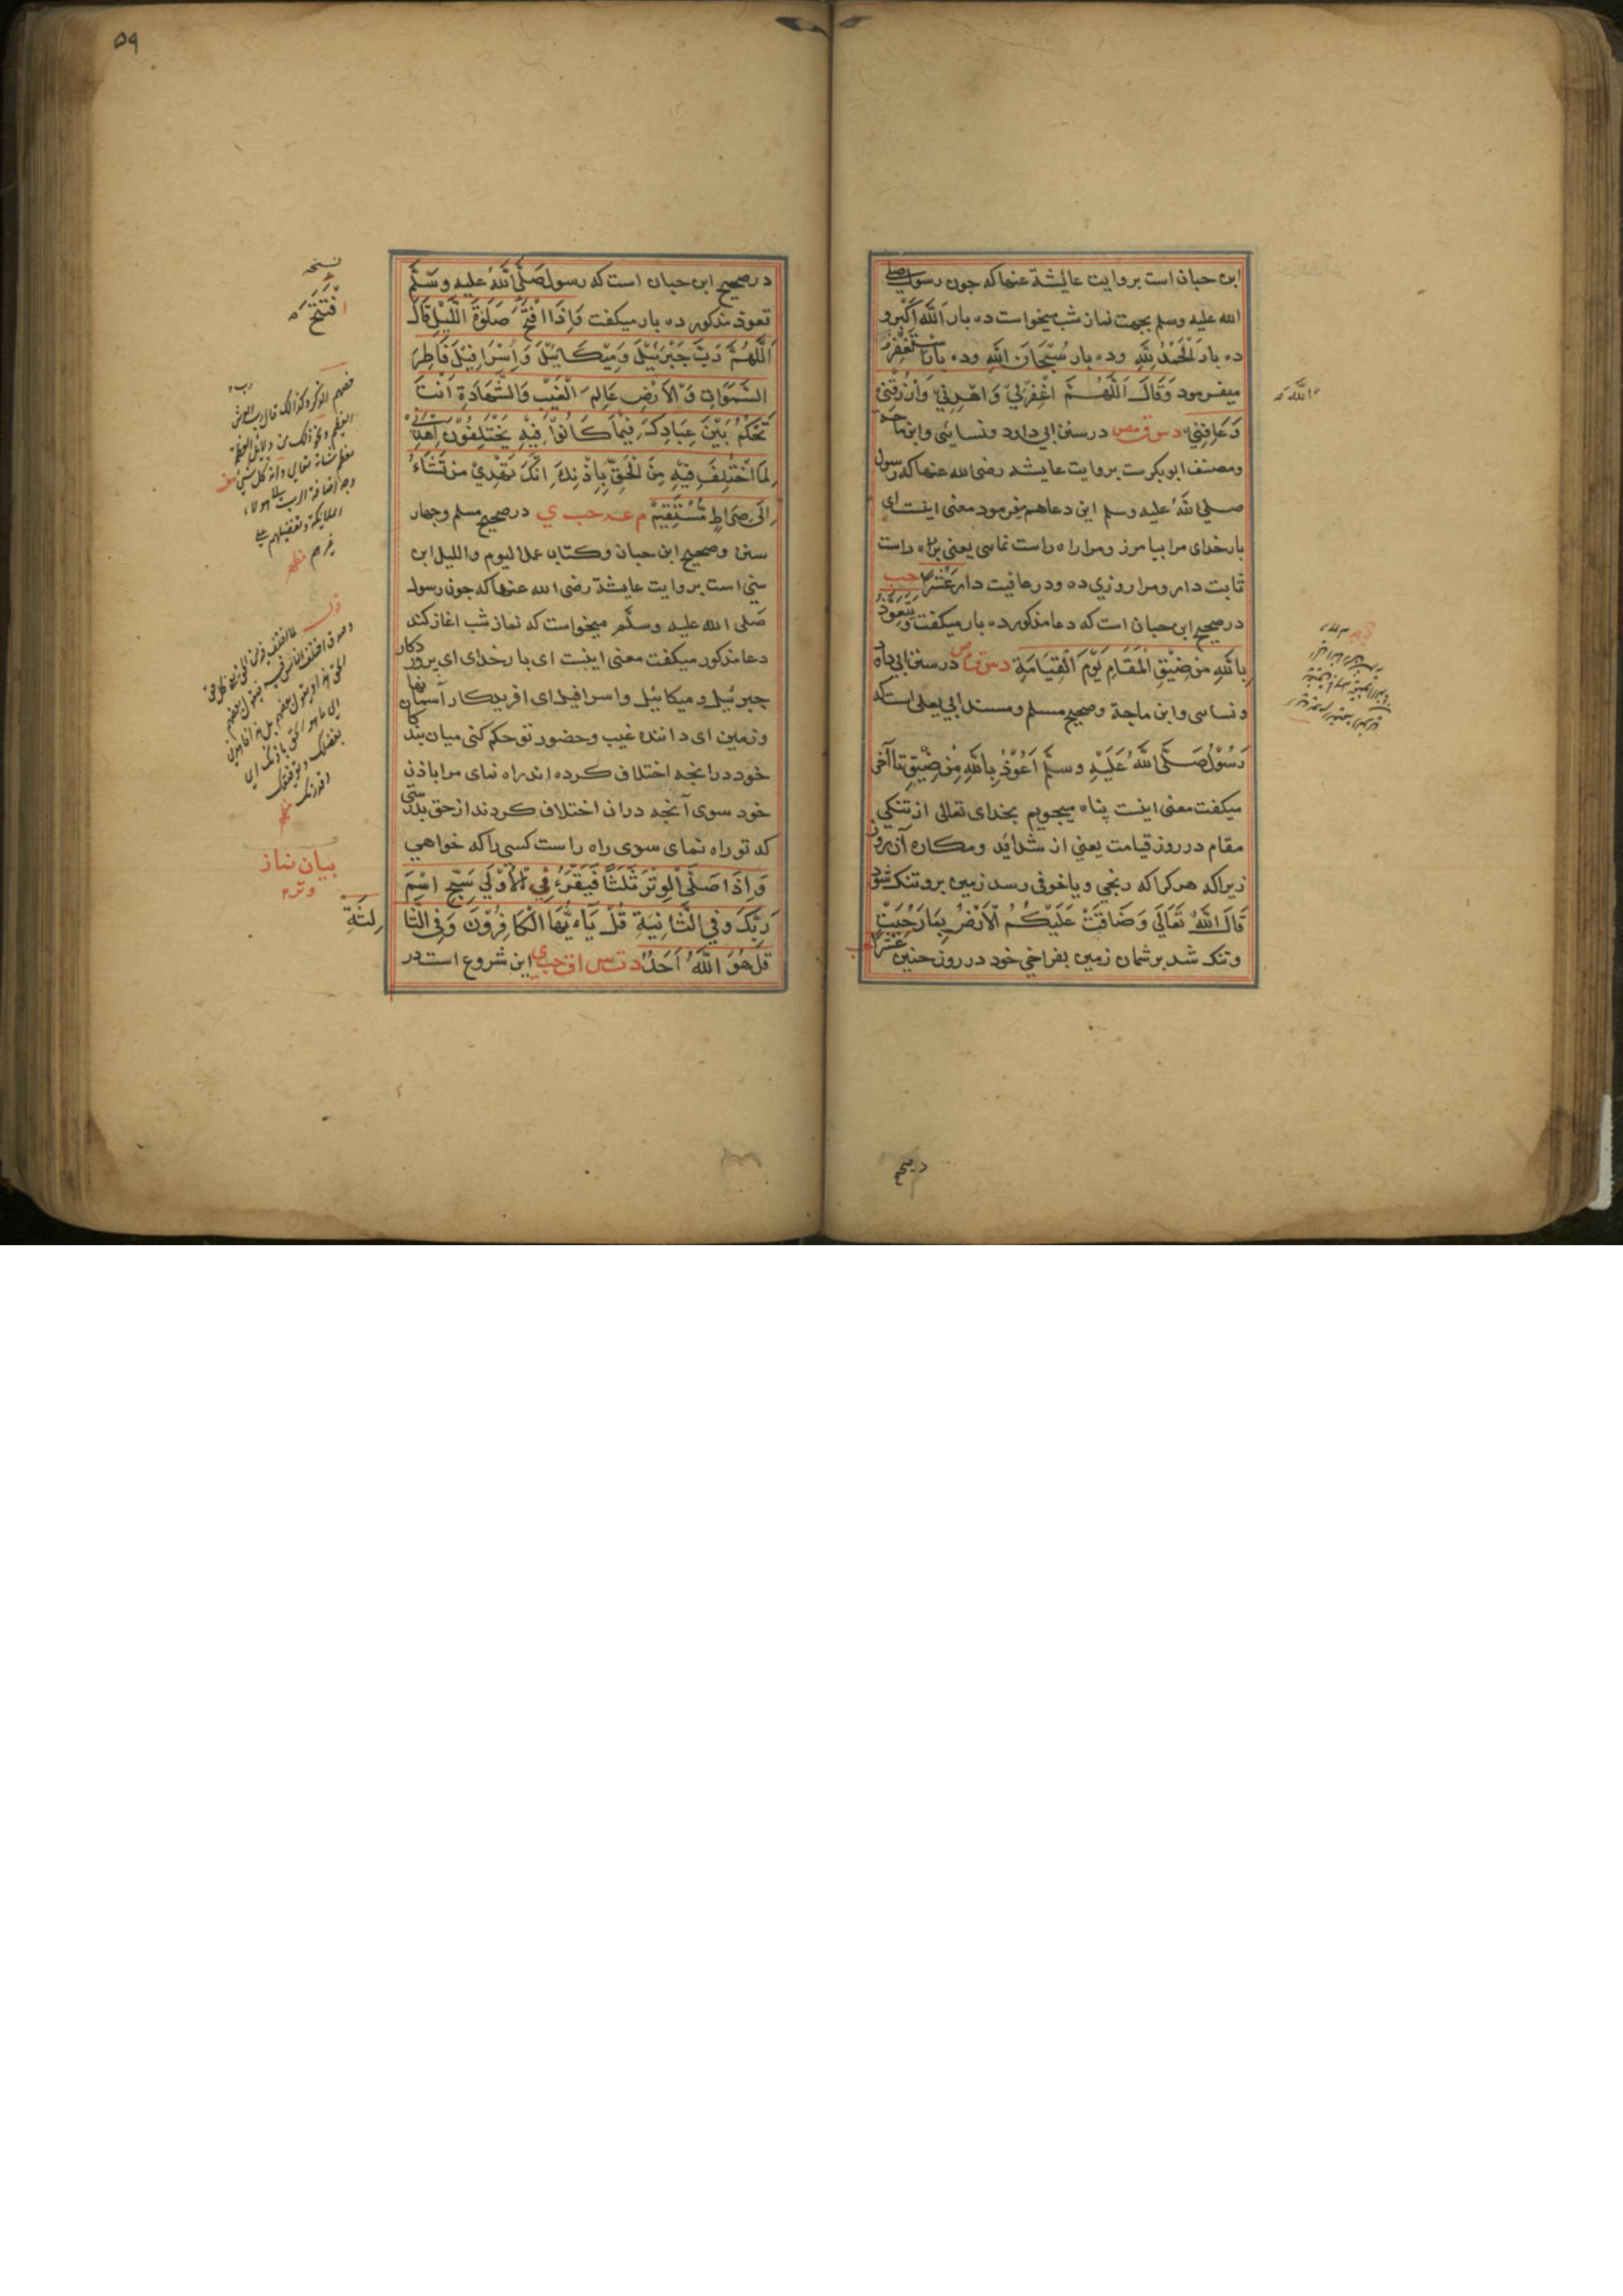 ابن حبان است بروایت عایشة عنها که جون رسول صلی
الله علیه وسلم بجهت نماز شب میخواست ده بار اَللّٰهُ اَکْبَرُ و
ده بار اَلْحَمْدُ لِلّٰهِ وده بار سُبْحَانَ اللّٰهِ وده بار اَسْتَغْفِرُ
میفرمود وَقَالَ اَللّٰهُمَّ اغْفِرْلِيْ وَاهْدِنِيْ وَارْزُقْنِيْ
وَعَافِنِيْ دس ق مص در سنن ابی داود ونسائی وابن ماجه
ومصنف ابوبکرست بروایت عایشه رضی الله عنها که رسول
صلی اللهُ علیه وسلم این دعا هم میفرمود معنی اینست ای
بارخدای مرا بیامرز ومرا راه راست نمای یعنی براه راست
ثابت دار ومرا روزي ده ودر عافیت دار عَشْرًا حب
در صحیح ابن حبان است که دعا مذکور ده بار میکفت وَيَتَعَوَّذُ
بِاللّٰهِ مِنْ ضِيْقِ الْمَقَامِ يَوْمَ الْقِيَامَةِ دس ق ص در سنن ابی داود
ونسای وابن ماجة وصحیح مسلم ومسند ابي یعلی است که
رَسُوْلُ صَلَّى اللّٰهُ عَلَيْهِ وسلَّم اَعُوْذُ بِاللّٰهِ مِنْ ضِيْقِ تا آخر
میکفت معنی اینست پناه میجویم بخدای تعالی از تنکی
مقام در روز قیامت یعني از شدائد ومکاره آن روز
زیراکه هر کرا که رنجي ویا خوفی رسد زمین برو تنک شود
قَالَ اللّٰهُ تَعَالَى وَضَاقَتْ عَلَيْكُمُ الْاَرْضُ بِمَا رَحُبَتْ
وتنک شد بر شمان زمین بفراخي خود در روز حنین عَشْرًا حب
در صحیح
۵۹
در صحیح ابن حبان است که رسول صَلَّى اللّٰهُ علیه وسَلَّم
تعوذ مذکور ده بار میکفت وَاِذَا افْتَتَحَ صَلٰوةَ اللَّيْلِ قَالَ
اَللّٰهُمَّ رَبَّ جَبْرَئِيْلَ وَمِيْكَائِيْلَ وَاِسْرَافِيْلَ فَاطِرَ
السَّمٰوَاتِ وَالْاَرْضِ عَالِمَ الْغَيْبِ وَالشَّهَادَةِ اَنْتَ
تَحْكُمُ بَيْنَ عِبَادِكَ فِيْمَا كَانُوْا فِيْهِ يَخْتَلِفُوْنَ اِهْدِنِيْ
لِمَا اخْتُلِفَ فِيْهِ مِنَ الْحَقِّ بِاِذْنِكَ اِنَّكَ تَهْدِيْ مَنْ تَشَاءُ
اِلَى صِرَاطٍ مُّسْتَقِيْمٍ م عه حب ي در صحیح مسلم وجهار
سنن وصحیح ابن حبان وکتاب عمل الیوم واللیل ابن
سني است بروایت عایشة رضی الله عنها که جون رسول
صَلی الله علیه وسلَّم میخواست که نماز شب اغاز کند
دعا مذکور میکفت معنی اینست ای بار خدای ای پروردکار
جبرئیل ومیکائیل واسرافیل ای افریدکار آسمانها
وزمین ای داننده غیب وحضور تو حکم کنی میان بندکان
خود در انجه اختلاف کرده اند راه نمای مرا باذن
خود سوی آنجه دران اختلاف کردند از حق بدرستی
که تو راه نمای سوی راه راست کسی را که خواهي
وَاِذَا صَلَّى الْوِتْرَ ثَلٰثًا فَيَقْرَءُ فِي الْاُوْلٰي سَبِّحِ اسْمَ
رَبِّكَ وَفِي الثَّانِيَةِ قُلْ يَا اَيُّهَا الْكَافِرُوْنَ وَفِي الثَّا
لِثَةِ
قُلْ هُوَ اللّٰهُ اَحَدٌ د ت س ا ق حب ي این شروع است در
نسخه
افْتَتَحَ
بیان نماز
وتر